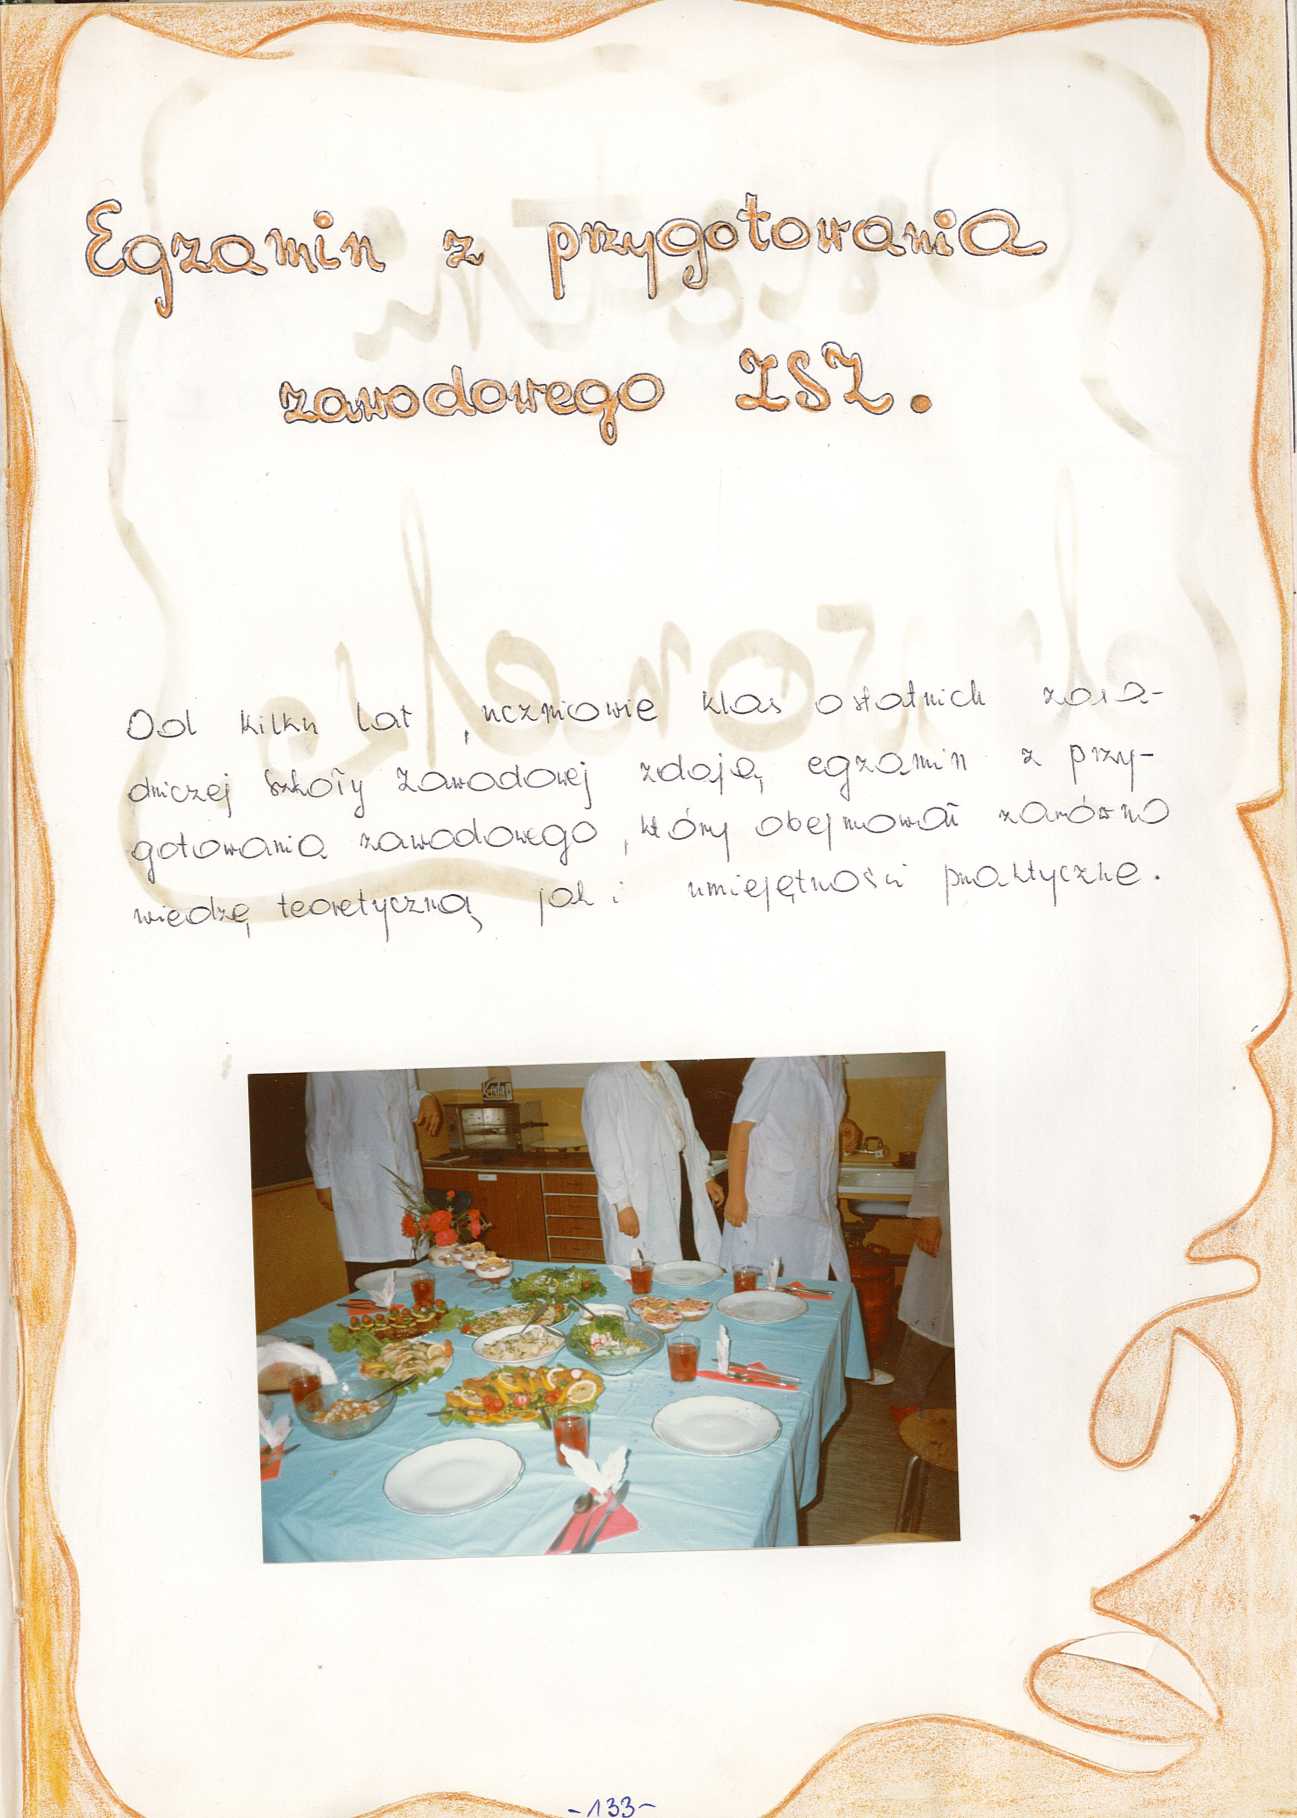 Egzamin z przygotowania
zawodowego ZSZ.
Od kilku lat, uczniowie klas ostatnich zasa-
dniczej Szkoły Zawodowej zdają egzamin z przy-
gotowania zawodowego, który obejmował zarówno
wiedzę teoretyczną jak i umiejętności praktyczne.
-133-